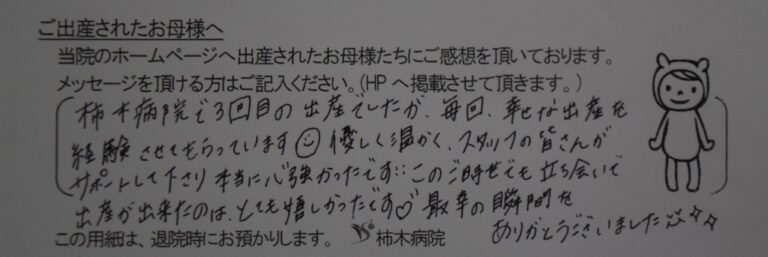 ご出産されたお母様へ
当院のホームページへ出産されたお母様たちにご感想を頂いております。
メッセージを頂ける方はご記入ください。(HPへ掲載させて頂きます。)
柿木病院で3回目の出産でしたが、毎回、幸せな出産を
経験させてもらっています☺ 優しく温かく、スタッフの皆さんが
サポートして下さり本当に心強かったです¨ このご時世でも立ち会いで
出産が出来たのは、とても嬉しかったです♡ 最幸の瞬間を
ありがとうございました
この用紙は、退院時にお預かりします。 柿木病院